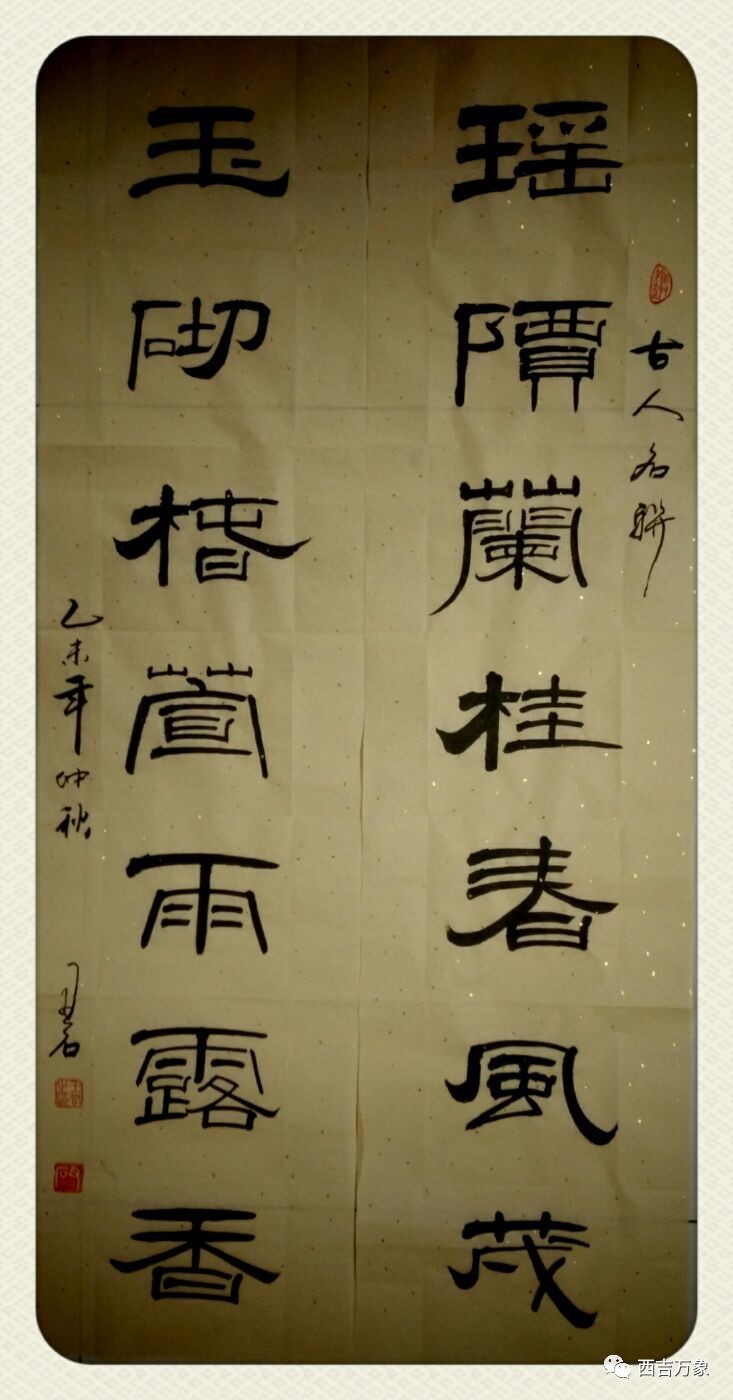 古人名聯
瑶蘭桂春風茂
玉砌椿萱雨露香
乙未年仲秋
西吉万象